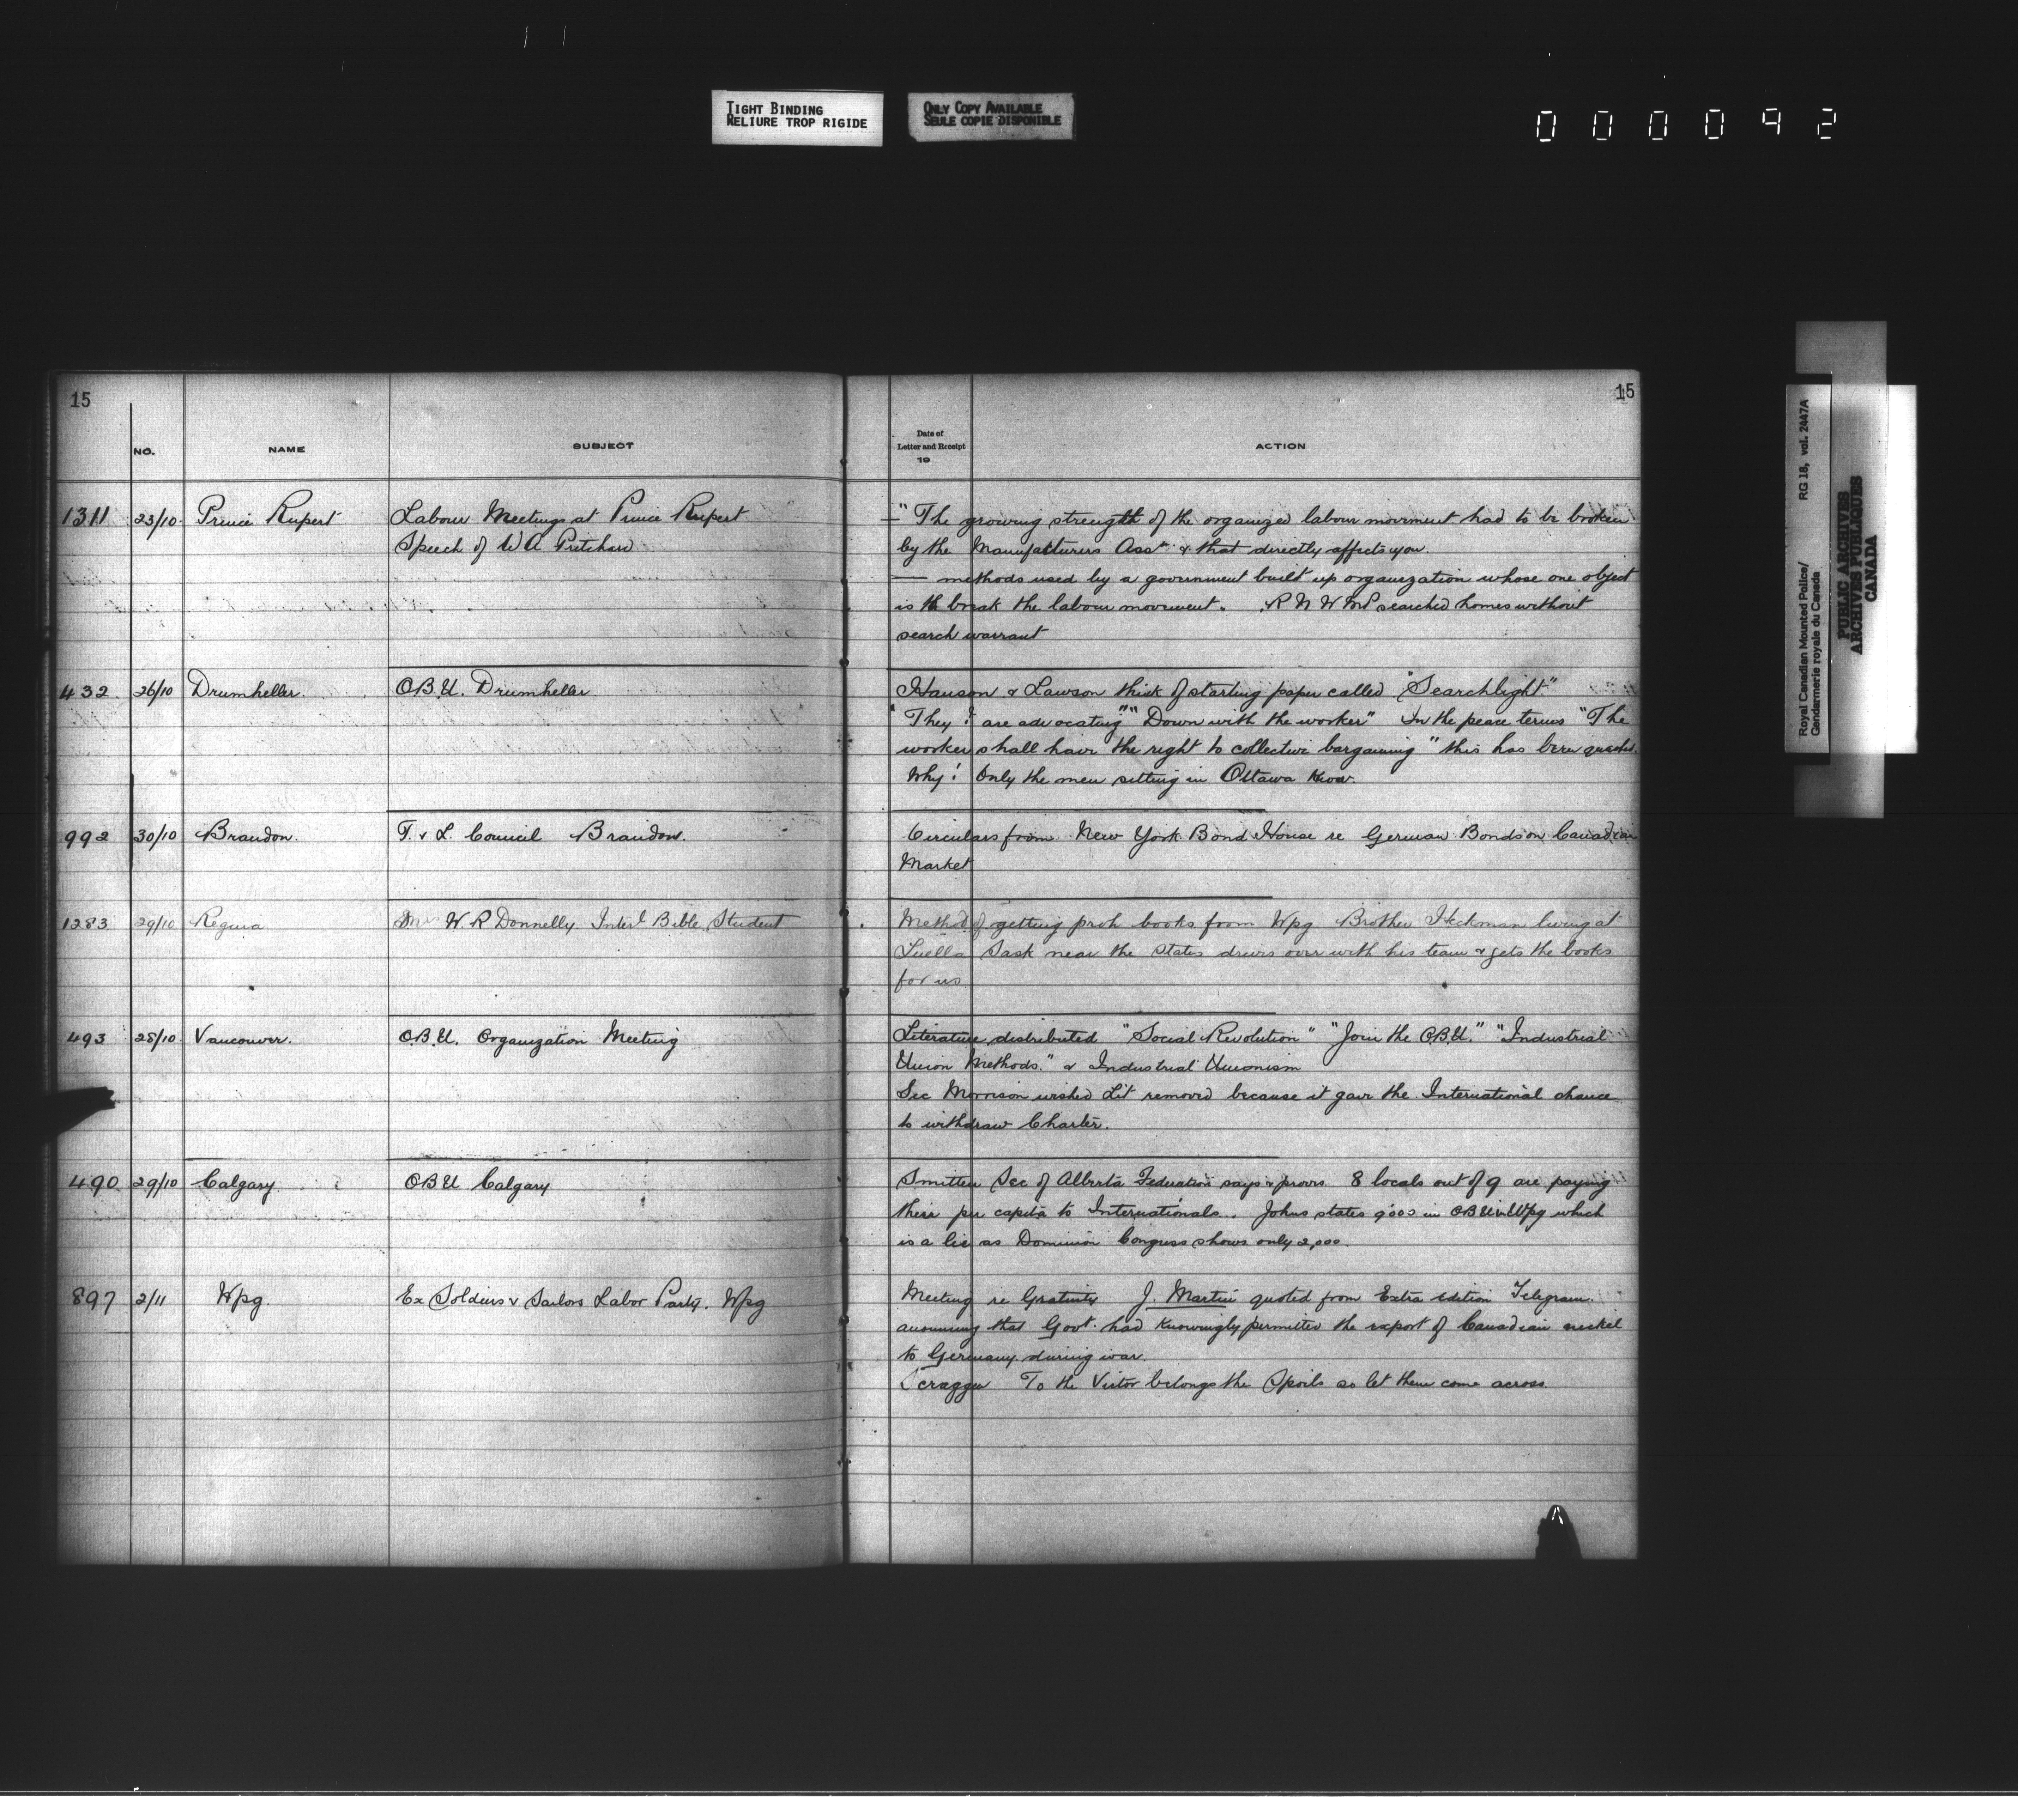 TIGHT BINDING
RELIURE TROP RIGIDE
ONLY COPY AVAILABLE
SEULE COPIE DISPONIBLE
000092
Royal Canadian Mounted Police/ RG 18, vol. 2447A
Gendarmerie royale du Canada
PUBLIC ARCHIVES
ARCHIVES PUBLIQUES
CANADA
15
15
NO. NAME SUBJECT
Date of
Letter and Receipt
19
ACTION
1311 23/10 Prince Rupert Labour Meetings at Prince Rupert
Speech of W A Pritchard
—" The growing strength of the organized labour movement had to be broken
by the Manufacturers Asst & that directly affects you.
— methods used by a government built up organization whose one object
is to break the labour movement. R N W M P searched homes without
search warrant
432 26/10 Drumheller. O.B.U. Drumheller
Hanson & Lawson think of starting paper called "Searchlight."
"They ? are advocating" "Down with the worker" In the peace terms "The
worker shall have the right to collective bargaining" this has been quashed.
Why! Only the men sitting in Ottawa know.
992 30/10 Brandon. T. & L. Council Brandon.
Circulars from New York Bond House re German Bonds on Canadian
Market
1283 29/10 Regina Mrs W. R Donnelly Interl Bible Student
Method of getting proh books from Wpg Brother Heckman living at
Luella Sask near the States drives over with his team & gets the books
for us
493 28/10 Vancouver. O.B.U. Organization Meeting
Literature distributed "Social Revolution" "Join the O.B.U." "Industrial
Union Methods." & Industrial Unionism
Sec Morrison wished Lit removed because it gave the International chance
to withdraw Charter.
490 29/10 Calgary OBU Calgary
Smitten Sec of Alberta Federation says & proves 8 locals out of 9 are paying
their per capita to Internationals. Johns states 9000 in OBU in Wpg which
is a lie as Dominion Congress shows only 2,000.
897 2/11 Wpg. Ex Soldiers & Sailors Labor Party. Wpg
Meeting re Gratuity J. Martin quoted from Extra edition Telegram
that Govt. had knowingly permitted the export of Canadian nickel
to Germany during war.
Scragge To the Victor belongs the Spoils so let them come across.